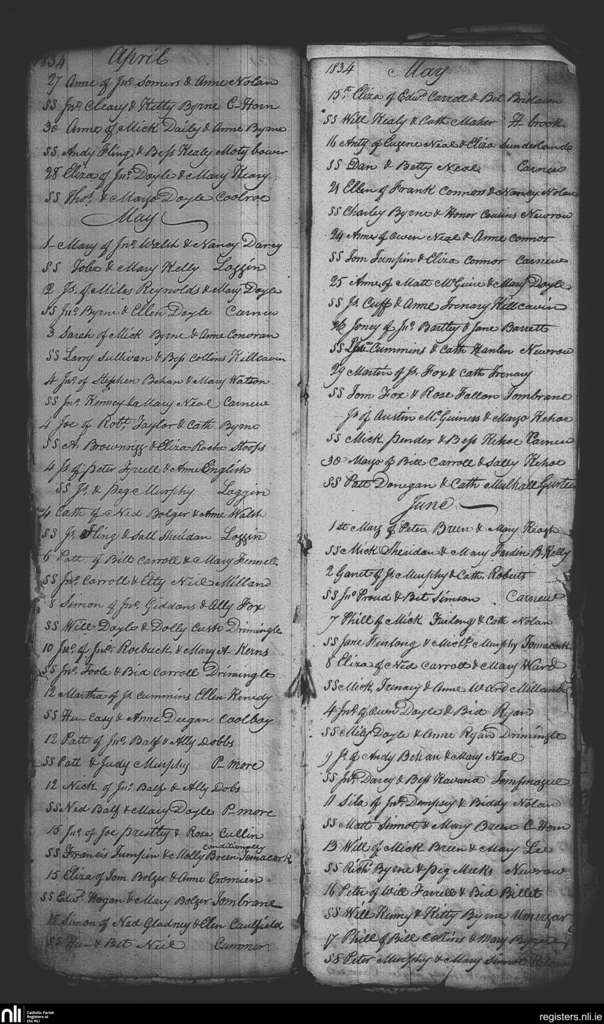 1834 April
27 Anne of Jno. Somers & Anne Nolan
SS Jno. Cleary & Kitty Byrne C-Horn
30 Anne of Mick Daily & Anne Byrne
SS Andy Fling & Bess Healy Moty bower
28 Eliza of Jno. Doyle & Mary
SS Thos. & Margo Doyle Coolroe
May
1 Mary of Jno. Walsh & Nancy Darcy
SS & Mary Kelly Loggin
2 Js. of Miles Reynolds & Mary Doyle
SS Jno. Byrne & Ellen Doyle Carnew
3 Sarah of Mick Byrne & Anne Conoran
SS Lary Sullivan & Bess Collins Killcavin
4 Jno. of Stephen Behan & Mary Watson
SS Jno. & Mary Neal Carnew
4 Joe of Robt. Taylor & Cath Byrne
SS A. Brownrigg & Eliza Roche Stoops
4 Js. of Peter Tyrell & Anne English
SS Js. & Peg Murphy Loggin
4 Cath of Ned Bolger & Anne Walsh
SS Js. Fling & Sall Sheridan Loggin
6 Patt of Bill Carroll & Mary
SS Jno. Carroll & Neil Milland
8 Simon of Jno. Giddans & Ally Fox
SS Will Doyle & Dolly Cush Drimingle
10 Jno. of Jno. Roebuck & Mary A. Kerns
SS Jno. Toole & Bid Carroll Drimingle
12 Martha of Js. Cummins Ellen Kenedy
SS Hu Casy & Anne Deegan Coolboy
12 Patt of Jno. Balf & Ally Dobbs
SS Patt & Judy Murphy P-more
12 Nick of Jno. Balf & Ally Dobs
SS Ned Balf & Mary Doyle P-more
15 Jno. of Joe & Rose Cullin
conditionally
SS Francis Tumpin & Molly Breen Tomacork
15 Eliza of Tom Bolger & Anne
SS Edwd. Hogan & Mary Bolger Tombrane
18 Simon of Ned Gladney & Ellen Caulfield
SS Hu & Bet Neil Cummer
1834 May
15th Eliza of Edwd. Carroll & Bet
SS Will Healy & Cath Maher H-brook
16 Anty of Eugene Neal & Eliza Sunderlands
SS Dan & Betty Neal Carnew
21 Ellen of Frank Connors & Nancy Nolan
SS Charley Byrne & Honor Newrow
24 Anne of Owen Neal & Anne Connor
SS Tom Tumpin & Eliza Connor Carnew
25 Anne of Matt McGuire & Mary Doyle
SS Js. Cuff & Anne Trenary Killcavin
26 Joney of Js. Bartley & Jane Barrett
SS Cummins & Cath Hanlen Newrow
29 Martin of Js. Fox & Cath Trenary
SS Tom Fox & Rose Fallon Tombrane
Js. of Austin McGuiness & Margo Kehoe
SS Mick Pender & Bess Kehoe Carnew
30 Margo of Bill Carroll & Sally Kehoe
SS Patt Donegan & Cath Mulhall
June
1st Marg of Peter Breen & Mary Keogh
SS Mick Sheridan & Mary B.Kelly
2 Garret of Js. Murphy & Cath. Roberts
SS Jno. Proud & Bet Simson Carnew
7 Phill of Mick Furlong & Cath Nolan
SS Jane Furlong & Michl. Murphy Tomacork
8 Eliza of Ned Carroll & Mary Ward
SS Mick Trenary & Anne Ward Milland
4 Jno. of Owen Doyle & Bid Ryan
SS Doyle & Anne Ryan Drimingle
9 Js. of Andy Behan & Mary Neal
SS Jno. Darcy & Bess Kavana
11 of Jno. Dempsey & Biddy Nolan
SS Matt Sinnot & Mary Breen C-Horn
13 Will of Mick Breen & Mary Lee
SS Rich Byrne & Peg Meeks Newrow
16 Peter of Will Farrell & Bid Billet
SS Will & Kitty Byrne
17 Phill of Bill Collins & Mary Byrne
SS Peter Murphy & Mary Sinnot
nli
Catholic Parish
Registers at
the NLI
registers.nli.ie